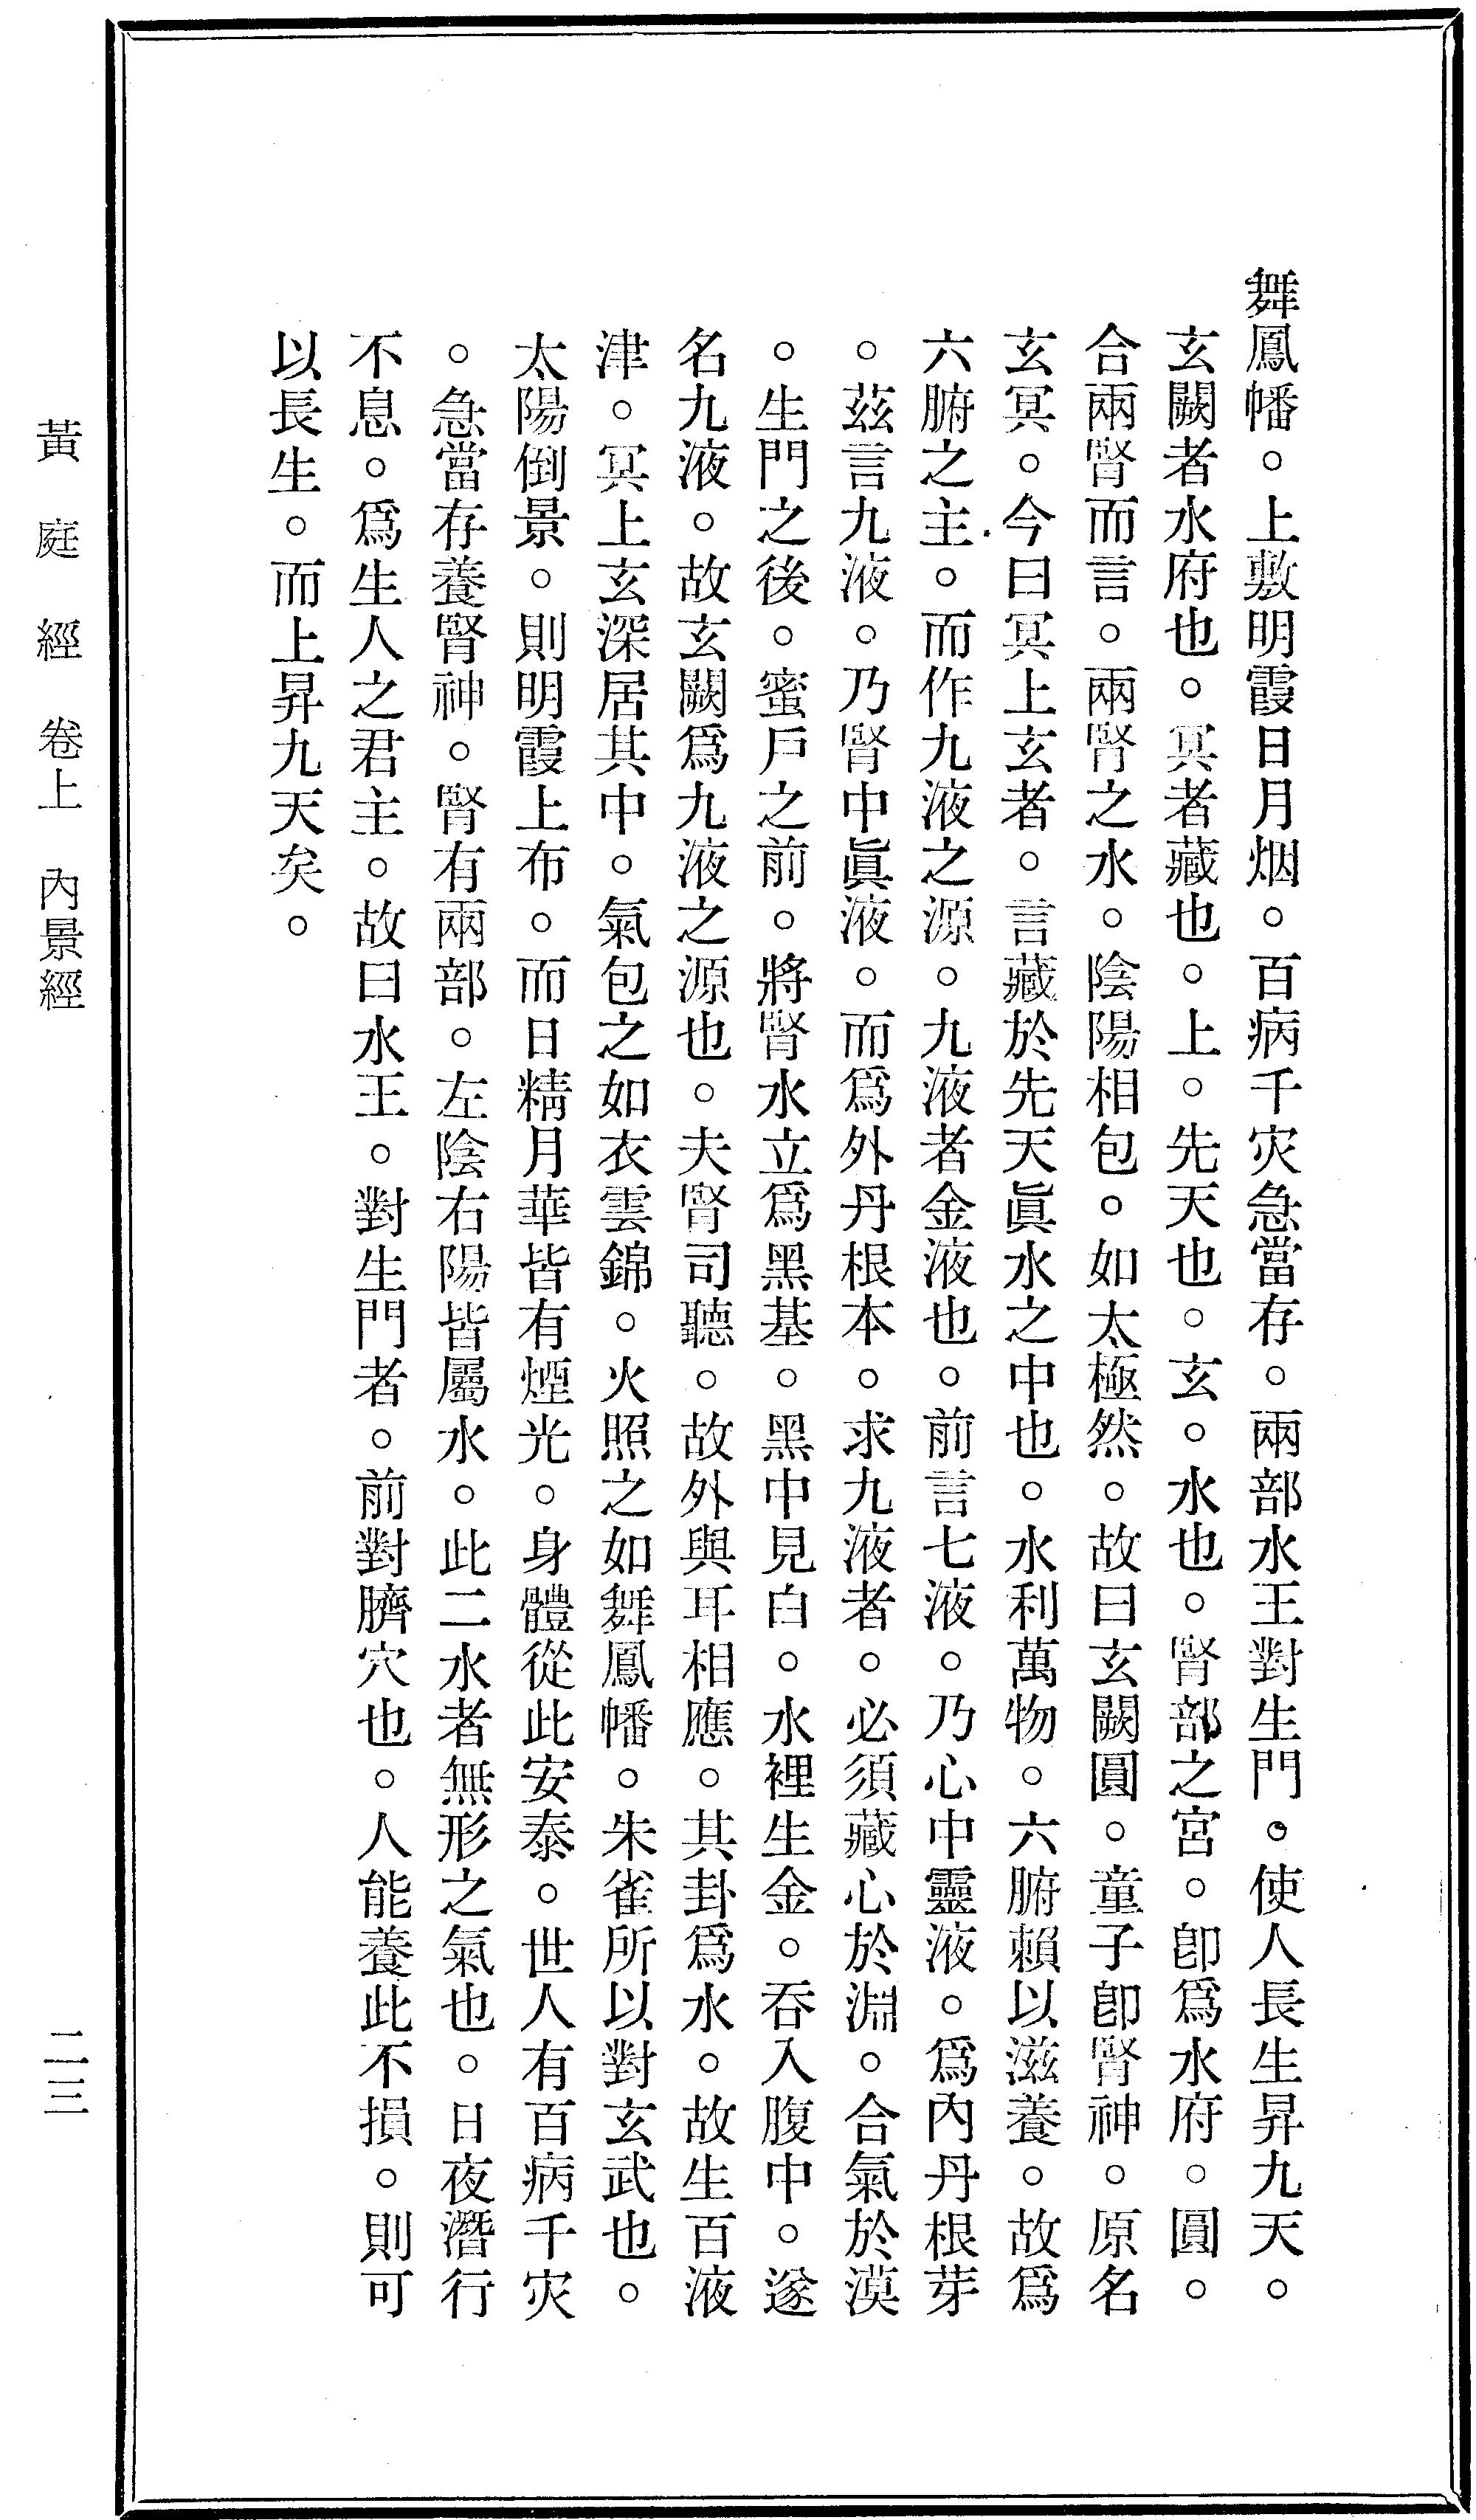 舞鳳幡。上敷明霞日月烟。百病千灾急當存。兩部水王對生門。使人長生昇九天。
玄闕者水府也。冥者藏也。上。先天也。玄。水也。腎部之宮。卽爲水府。圓。
合兩腎而言。兩腎之水。陰陽相包。如太極然。故曰玄闕圓。童子卽腎神。原名
玄冥。今曰冥上玄者。言藏於先天眞水之中也。水利萬物。六腑賴以滋養。故爲
六腑之主。而作九液之源。九液者金液也。前言七液。乃心中靈液。爲內丹根芽
。茲言九液。乃腎中眞液。而爲外丹根本。求九液者。必須藏心於淵。合氣於漠
。生門之後。蜜戶之前。將腎水立爲黑基。黑中見白。水裡生金。吞入腹中。遂
名九液。故玄闕爲九液之源也。夫腎司聽。故外與耳相應。其卦爲水。故生百液
津。冥上玄深居其中。氣包之如衣雲錦。火照之如舞鳳幡。朱雀所以對玄武也。
太陽倒景。則明霞上布。而日精月華皆有煙光。身體從此安泰。世人有百病千灾
。急當存養腎神。腎有兩部。左陰右陽皆屬水。此二水者無形之氣也。日夜潛行
不息。爲生人之君主。故曰水王。對生門者。前對臍穴也。人能養此不損。則可
以長生。而上昇九天矣。
黃庭經 卷上 內景經
二三